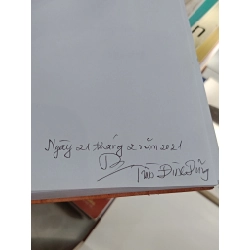 Ngày 21 tháng 2 năm 2021
Đình Dũng